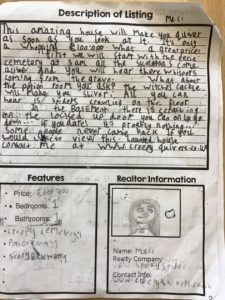 Description of Listing
This amazing house will make you quiver
as soon as you look at it. It's only
a whopping £100'000 what a great price!
First we will start with the eerie
cemetery at 3am all the skeletons come
alive and you can hear there whispers
coming from the grave. What about
the potion room you ask? the witches cackle
will make you shiver. All you can
hear is spiders crawling on the floor
In the basement, there is screaching
on the locked up door you can only go
down if you dare! its probly nothing
Some people never came back if you
would like to view this haunted house
contact me at www.creepy quivers.co.uk
Features
Price: £100'000
Bedrooms: 1
Bathrooms:
creepy cemetery
Potion room
scary basement
Realtor Information
Name:
Realty Company:
spooky
Contact Info:
www.creepy quivers.co.uk